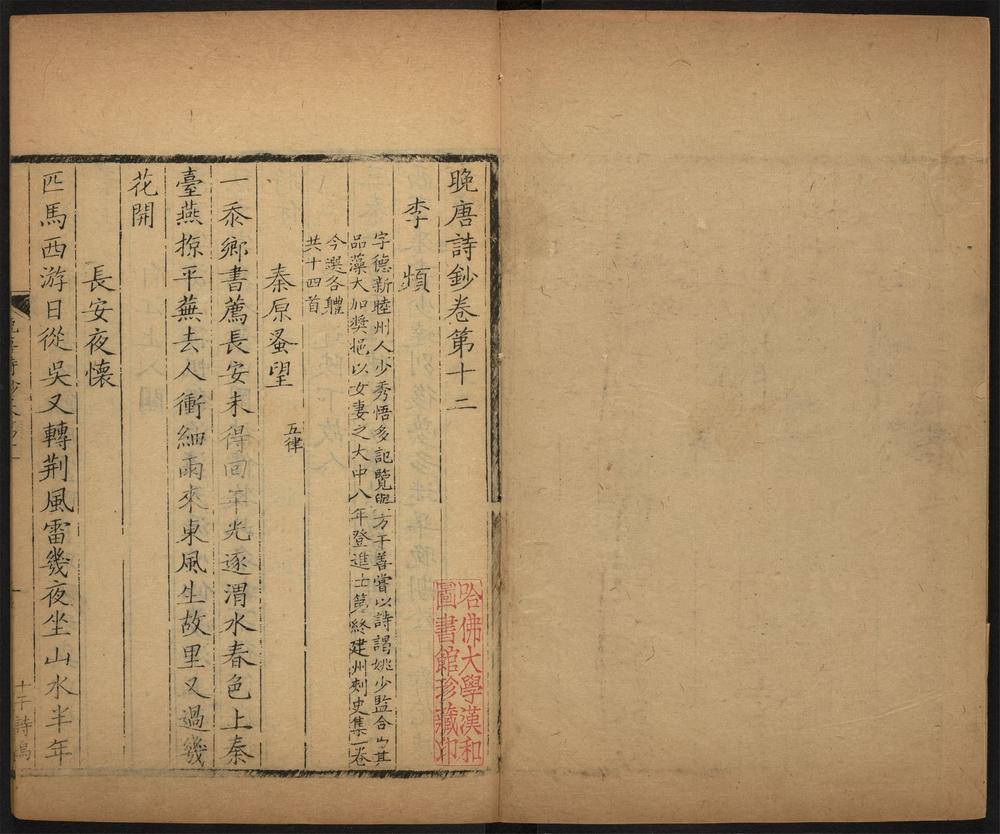 晚唐詩鈔卷第十二
李頻
字德新睦州人少秀悟多記覽與方干善嘗以詩謁姚少監合合其
品藻大加奬挹以女妻之大中八年登進士第終建州刺史集一卷
今選各軆
共十四首
秦原蚤望 五律
一忝鄉書薦長安未得回年光逐渭水春色上秦
臺燕掠平蕪去人衝細雨來東風生故里又過幾
花開
長安夜懷
匹馬西游日從吳又轉荆風雷幾夜坐山水半年
哈佛大學漢和
圖書館珍藏印